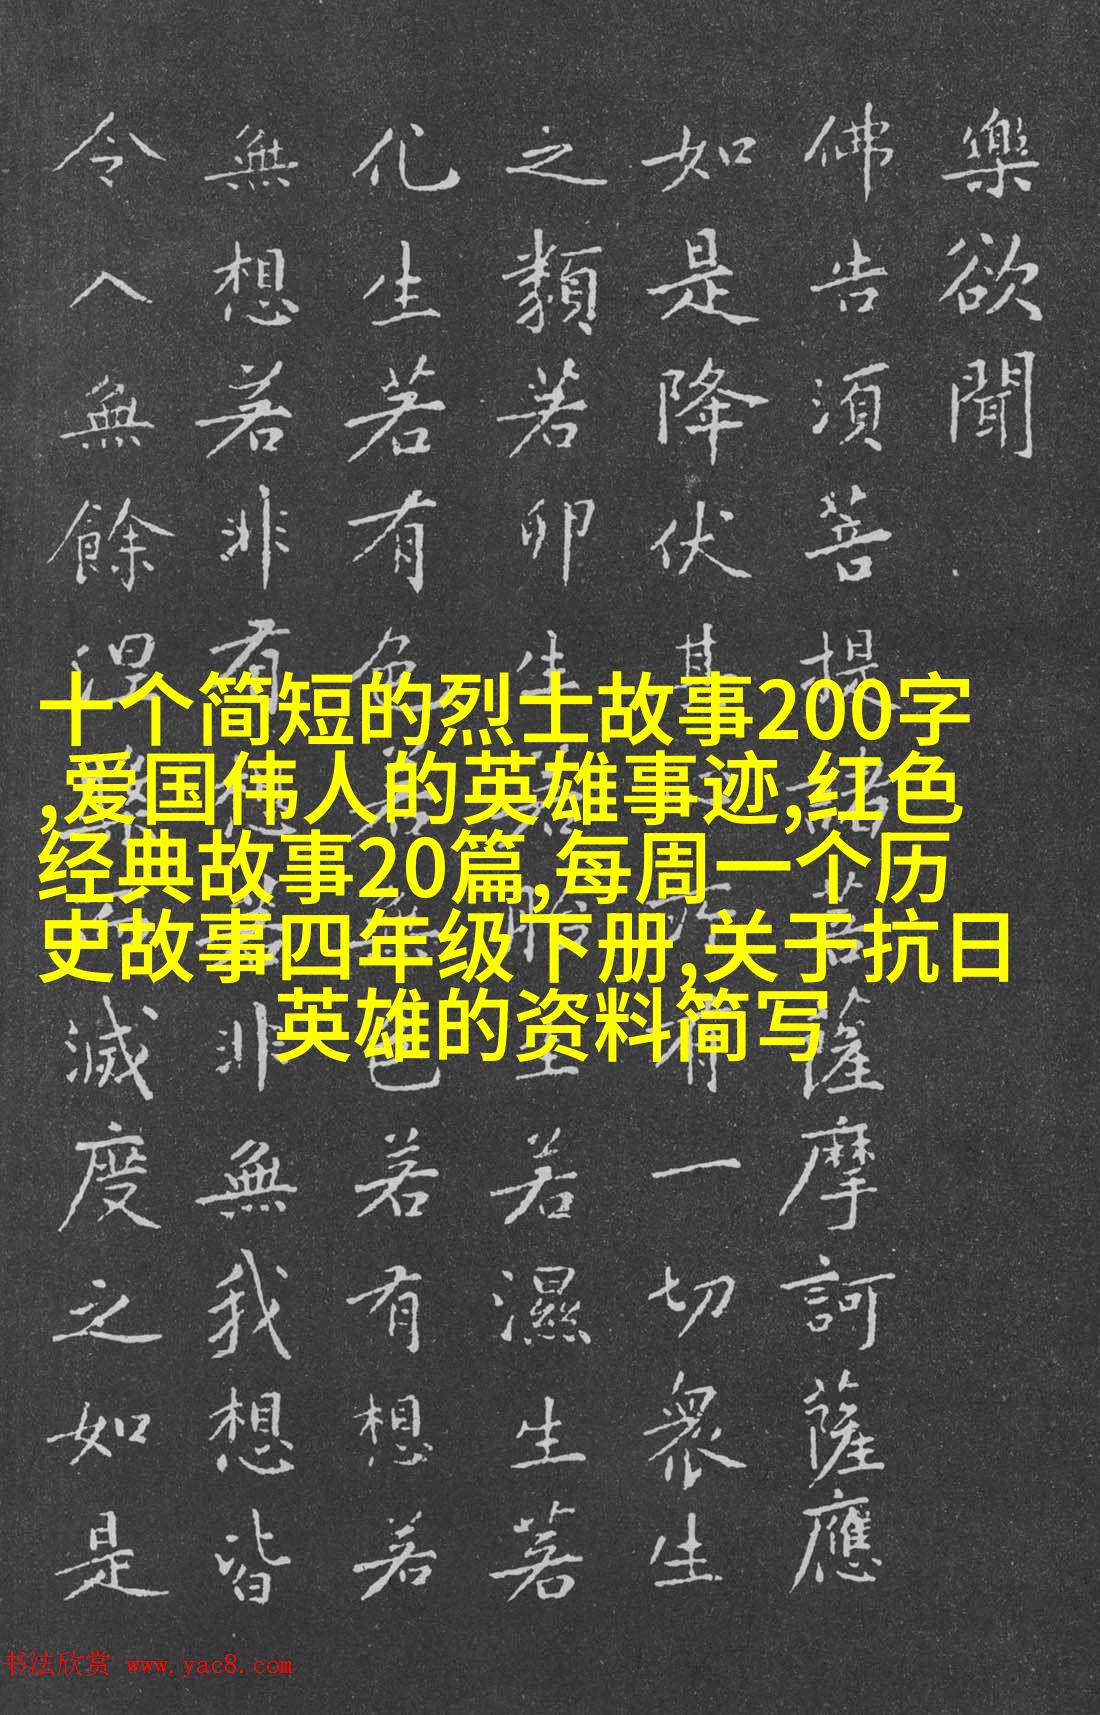 樂欲聞
佛告須菩提諸菩薩摩訶薩應
如是降伏其心所有一切衆生
之類若卵生若胎生若濕生若
化生若有色若無色若有想若
無想若非有想若非無我想皆
令入無餘涅槃而滅度之如是
十个简短的烈士故事200字
,爱国伟人的英雄事迹,红色
经典故事20篇,每周一个历
史故事四年级下册,关于抗日
英雄的资料简写
书法欣赏 www.yac8.com